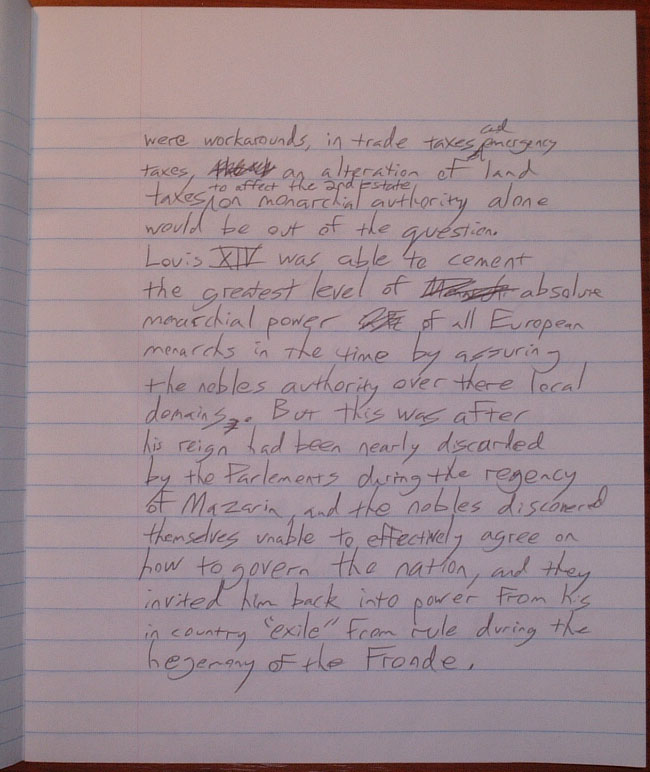 were workarounds, in trade taxes and emergency
taxes, an alteration of land
taxes to affect the 2nd Estate on monarchial authority alone
would be out of the question.
Louis XIV was able to cement
the greatest level of absolute
monarchial power of all European
monarchs in the time by assuring
the nobles authority over there local
domains. But this was after
his reign had been nearly discarded
by the Parlements during the regency
of Mazarin, and the nobles discovered
themselves unable to effectively agree on
how to govern the nation, and they
invited him back into power from his
in country "exile" from rule during the
hegemony of the Fronde.